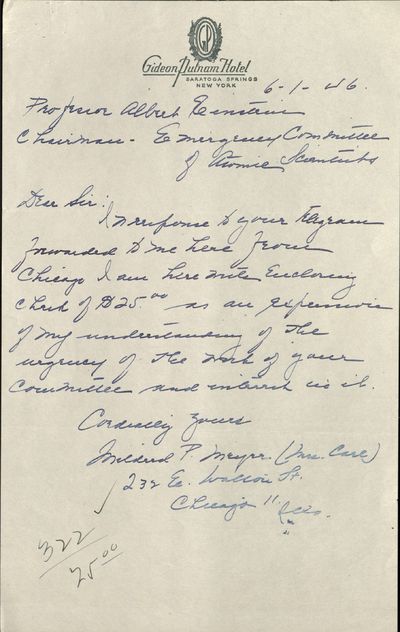 GP
Gideon Putnam Hotel
SARATOGA SPRINGS
NEW YORK
6-1-46.
Professor Albert Einstein
Chairman - Emergency Committee
of Atomic Scientists
Dear Sir:
In response to your telegram
forwarded to me here from
Chicago I am here with Enclosing
check of $25.00 as an expression
of my understanding of the
urgency of the work of your
Committee and interest in it.
Cordially yours
Mildred P. Meyer. (Mrs. Carl)
232 E. Walton St.
Chicago 11 Ills.
322
25.00